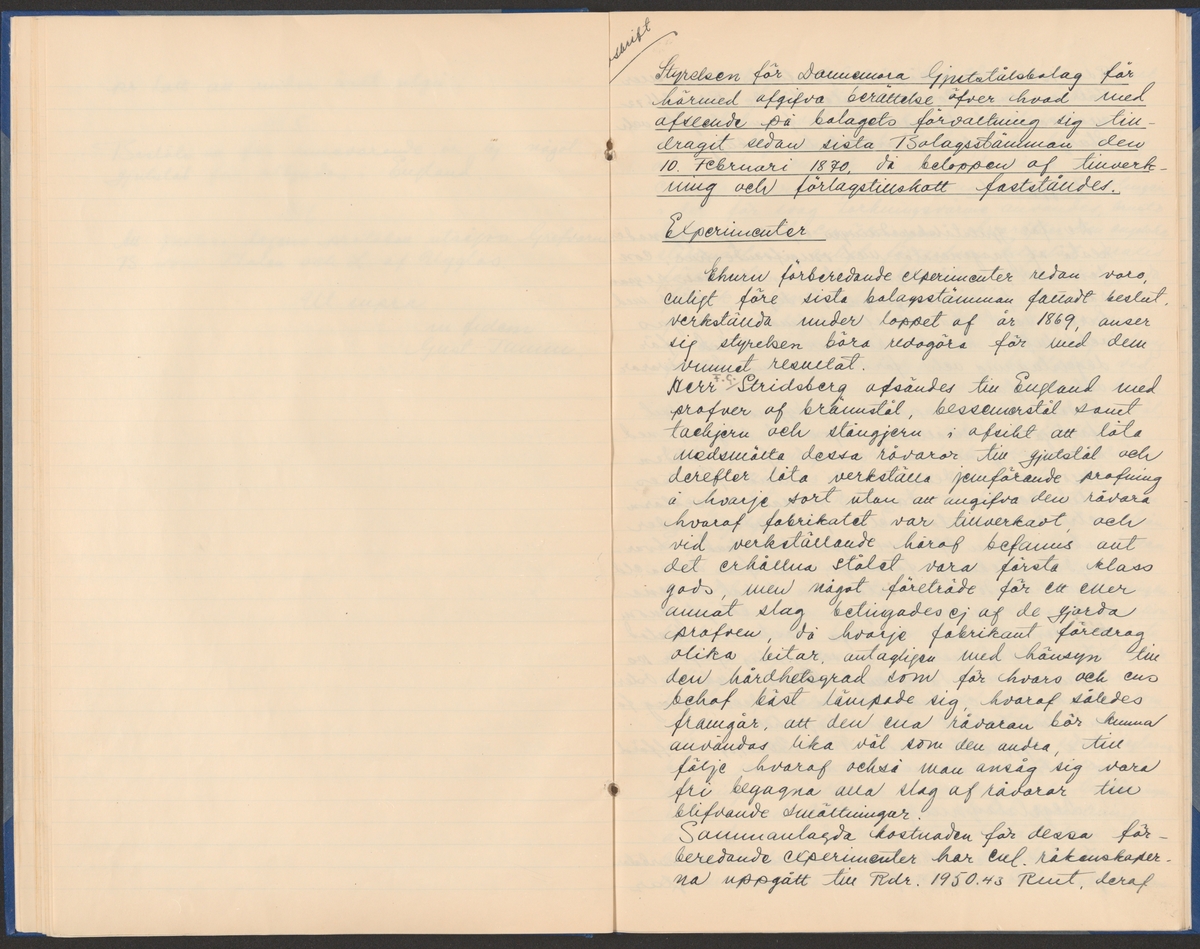 skrift
Styrelsen för Dannemora Gjutstålsbolag får
härmed afgifva berättelse öfver hvad med
afseende på bolagets förvaltning sig till-
dragit sedan sista Bolagsstämman den
10. Februari 1870, då beloppen af tillverk-
ning och förlagstillskott fastställdes.
Experimenter
Ehuru förberedande experimenter redan voro,
enligt före sista bolagsstämman fattadt beslut,
verkstälda under loppet af år 1869, anser
sig styrelsen böra redogöra för med dem
vunnet resultat.
Herr F.G. Stridsberg afsändes till England med
profver af brännstål, bessemerstål samt
tackjern och stångjern i afsikt att låta
nedsmälta dessa råvaror till gjutstål och
derefter låta verkställa jemförande profning
å hvarje sort utan att angifva den råvara
hvaraf fabrikatet var tillverkadt, och
vid verkställande häraf befanns allt
det erhållna stålet vara första klass
gods, men något företräde för ett eller
annat slag betingades ej af de gjorda
profven, då hvarje fabrikant föredrog
olika bitar, antagligen med hänsyn till
den hårdhetsgrad som för hvars och ens
behof bäst lämpade sig, hvaraf således
framgår, att den ena råvaran bör kunna
användas lika väl som den andra, till
följe hvaraf också man ansåg sig vara
fri begagna alla slag af råvaror till
blifvande smältningar.
Sammanlagda kostnaden för dessa för-
beredande experimenter har enl. räkenskaper-
na uppgått till Rdr. 1950.43 Rmt, deraf